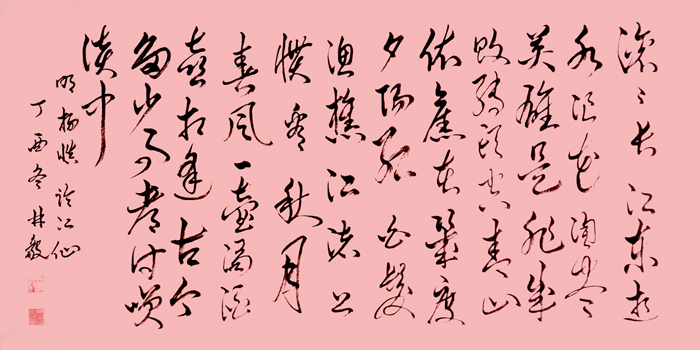 滚滚长江東逝
水浪花淘尽
英雄是非成
败转頭空青山
依舊在幾度
夕陽红白髮
渔樵江渚上
惯看秋月
春風一壶濁酒
喜相逢古今
多少事都付笑
谈中
明楊慎临江仙
丁酉冬林毅